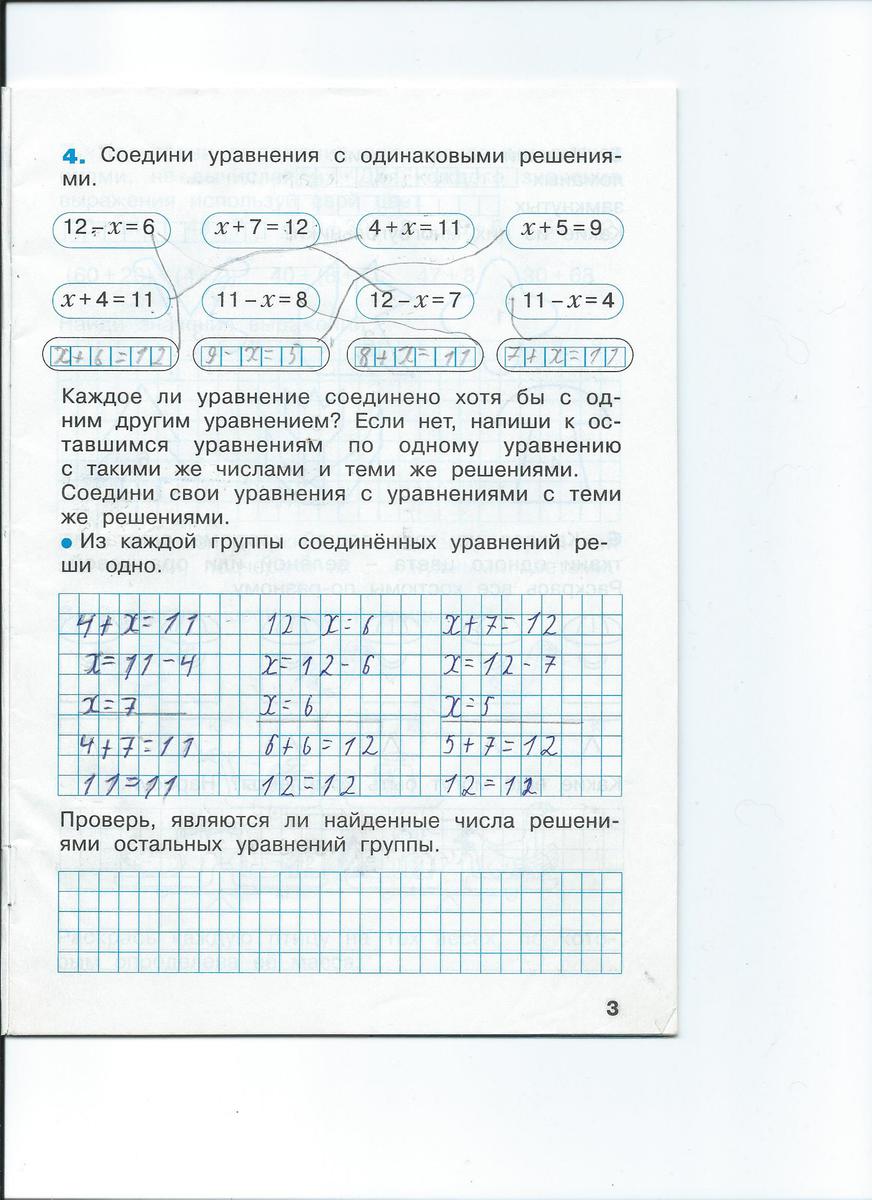 4. Соедини уравнения с одинаковыми решения-
ми.
12 - x = 6 x + 7 = 12 4 + x = 11 x + 5 = 9
x + 4 = 11 11 - x = 8 12 - x = 7 11 - x = 4
x + 6 = 12 9 - x = 5 8 + x = 11 7 + x = 11
Каждое ли уравнение соединено хотя бы с од-
ним другим уравнением? Если нет, напиши к ос-
тавшимся уравнениям по одному уравнению
с такими же числами и теми же решениями.
Соедини свои уравнения с уравнениями с теми
же решениями.
• Из каждой группы соединённых уравнений ре-
ши одно.
4 + x = 11 12 - x = 6 x + 7 = 12
x = 11 - 4 x = 12 - 6 x = 12 - 7
x = 7 x = 6 x = 5
4 + 7 = 11 6 + 6 = 12 5 + 7 = 12
11 = 11 12 = 12 12 = 12
Проверь, являются ли найденные числа решени-
ями остальных уравнений группы.
3